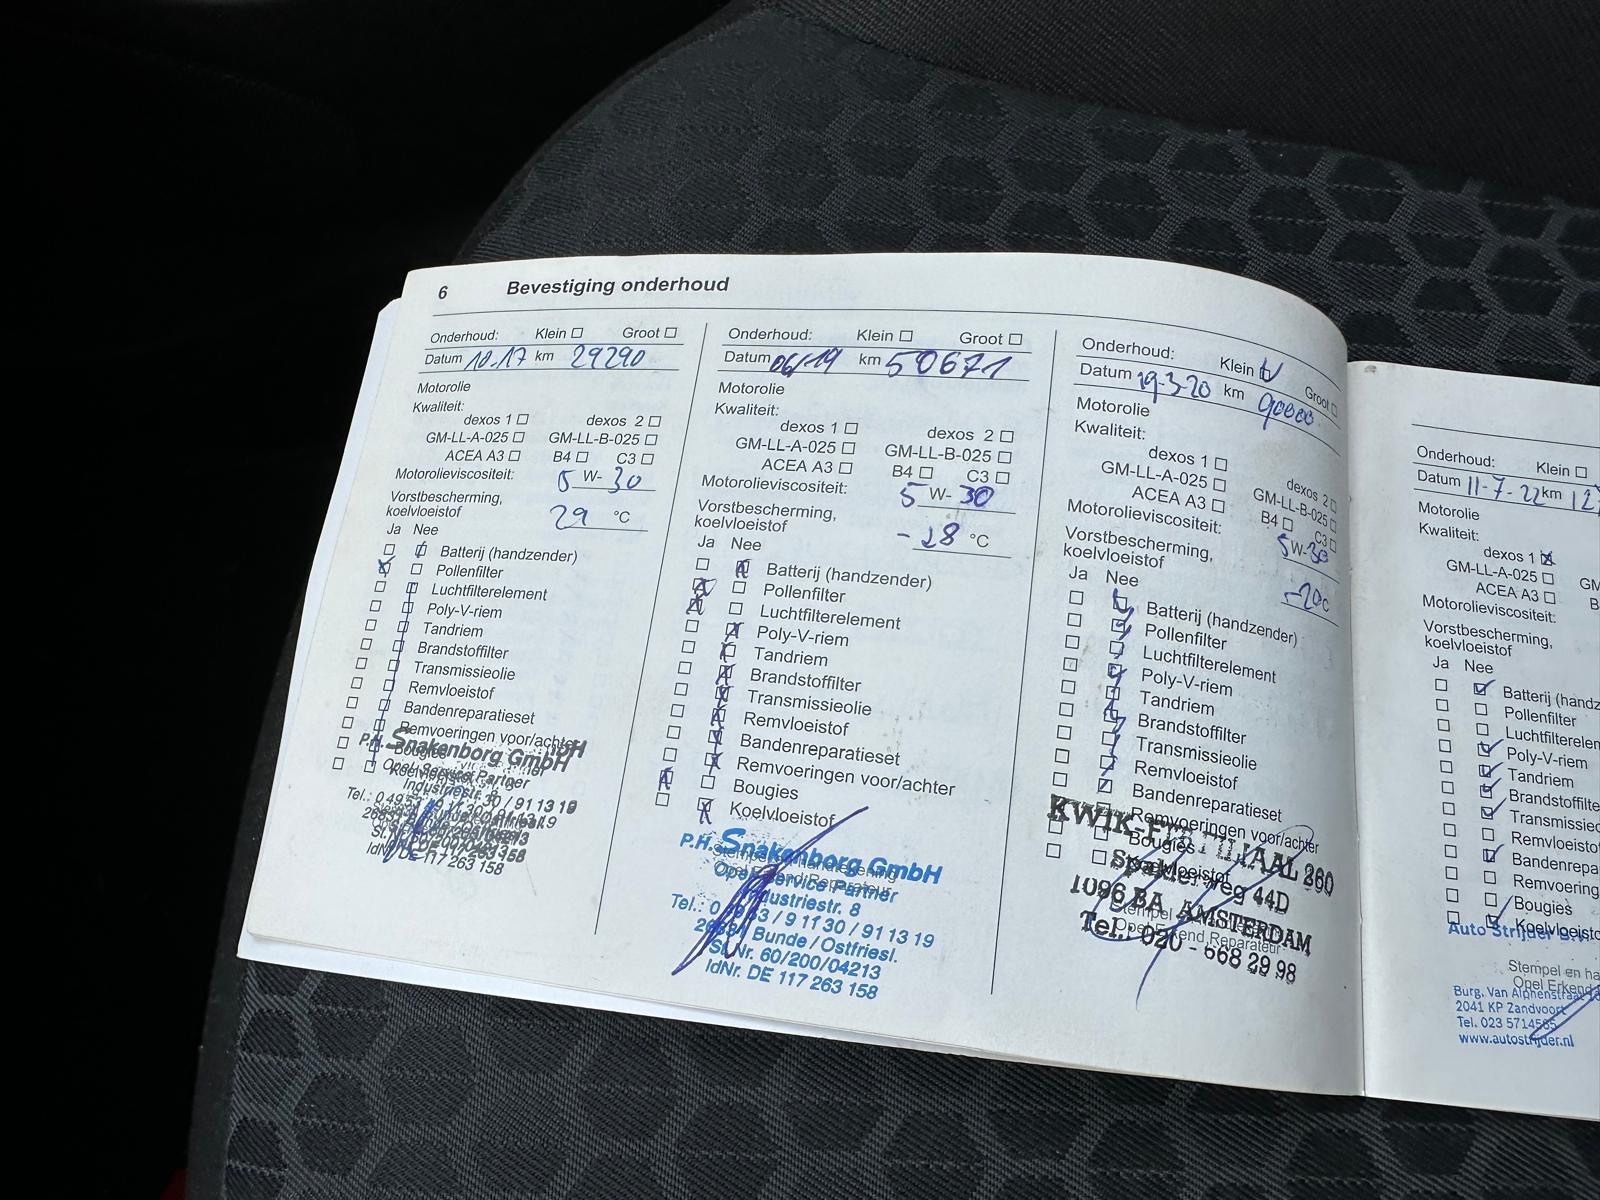 6 Bevestiging onderhoud
Onderhoud: Klein Groot
Datum 10.17 km 29290
Motorolie
Kwaliteit:
dexos 1 dexos 2
GM-LL-A-025 GM-LL-B-025
ACEA A3 B4 C3
Motorolieviscositeit: 5 W- 30
Vorstbescherming,
koelvloeistof 29 °C
Ja Nee
Batterij (handzender)
Pollenfilter
Luchtfilterelement
Poly-V-riem
Tandriem
Brandstoffilter
Transmissieolie
Remvloeistof
Bandenreparatieset
Remvoeringen voor/achter
Bougies
Koelvloeistof
P.H. Snakenborg GmbH
Opel Service Partner
Industriestr. 8
IdNr. DE 117 263 158
Onderhoud: Klein Groot
Datum 06/19 km 50671
Motorolie
Kwaliteit:
dexos 1 dexos 2
GM-LL-A-025 GM-LL-B-025
ACEA A3 B4 C3
Motorolieviscositeit: 5 W- 30
Vorstbescherming,
koelvloeistof -28 °C
Ja Nee
Batterij (handzender)
Pollenfilter
Luchtfilterelement
Poly-V-riem
Tandriem
Brandstoffilter
Transmissieolie
Remvloeistof
Bandenreparatieset
Remvoeringen voor/achter
Bougies
Koelvloeistof
P.H. Snakenborg GmbH
Opel Service Partner
Industriestr. 8
Tel.: 0 49 53 / 9 11 30 / 91 13 19
26831 Bunde / Ostfriesl.
St.Nr. 60/200/04213
IdNr. DE 117 263 158
Onderhoud: Klein Groot
Datum 19-3-20 km 90000
Motorolie
Kwaliteit:
dexos 1 dexos 2
GM-LL-A-025 GM-LL-B-025
ACEA A3 B4 C3
Motorolieviscositeit: 5 W- 30
Vorstbescherming,
koelvloeistof -20 °C
Ja Nee
Batterij (handzender)
Pollenfilter
Luchtfilterelement
Poly-V-riem
Tandriem
Brandstoffilter
Transmissieolie
Remvloeistof
Bandenreparatieset
Remvoeringen voor/achter
Bougies
Koelvloeistof
KWIK-FIT FILIAAL 260
weg 44D
1096 BA AMSTERDAM
Stempel
Opel Erkend Reparateur
Tel.: 020 - 668 29 98
Onderhoud: Klein
Datum 11-7-22 km 12
Motorolie
Kwaliteit:
dexos 1
GM-LL-A-025 GM
ACEA A3 B
Motorolieviscositeit:
Vorstbescherming,
koelvloeistof
Ja Nee
Batterij (handz
Pollenfilter
Luchtfilterelem
Poly-V-riem
Tandriem
Brandstoffilte
Transmissieo
Remvloeistof
Bandenrepa
Remvoering
Bougies
Koelvloeisto
Auto Strijder B.V.
Stempel en ha
Opel Erkend
Burg. Van Alphenstraat
2041 KP Zandvoort
Tel. 023 5714565
www.autostrijder.nl